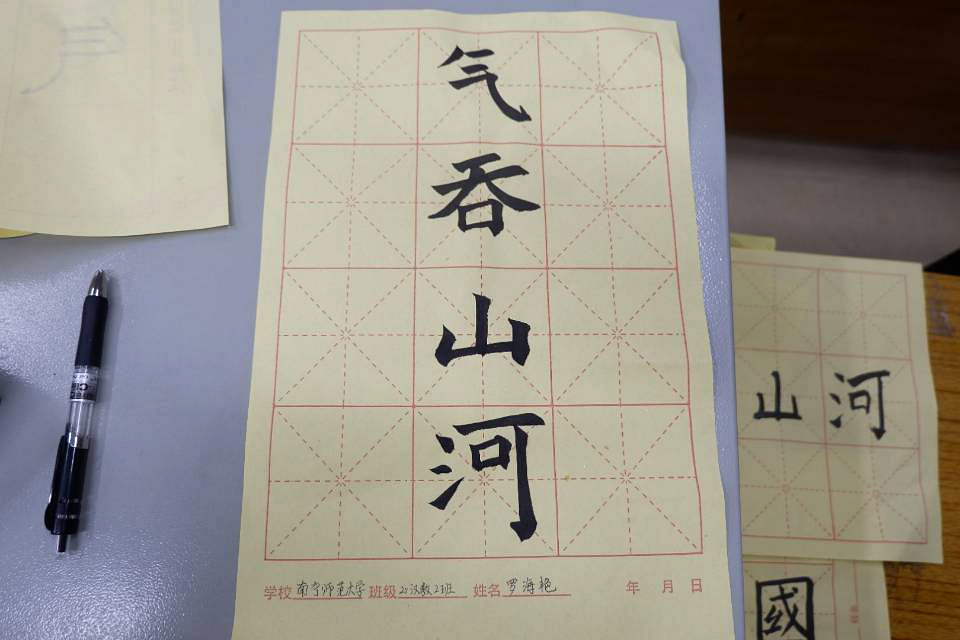 气
吞
山
河
学校 南宁师范大学 班级 21汉教2班 姓名 罗海艳 年 月 日
山 河
國